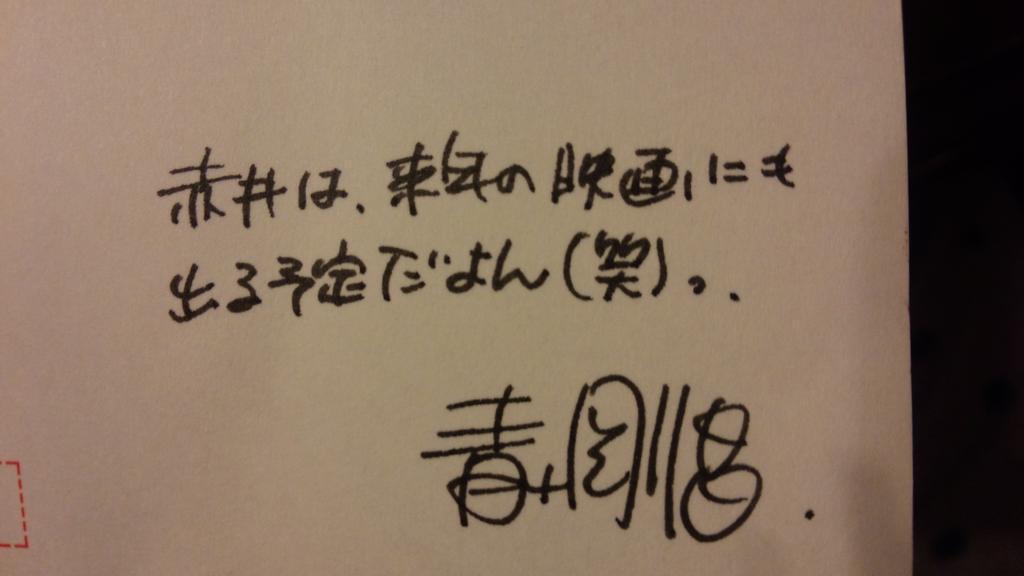 赤井は、来年の映画にも
出る予定だよん(笑)。.
青山剛昌.